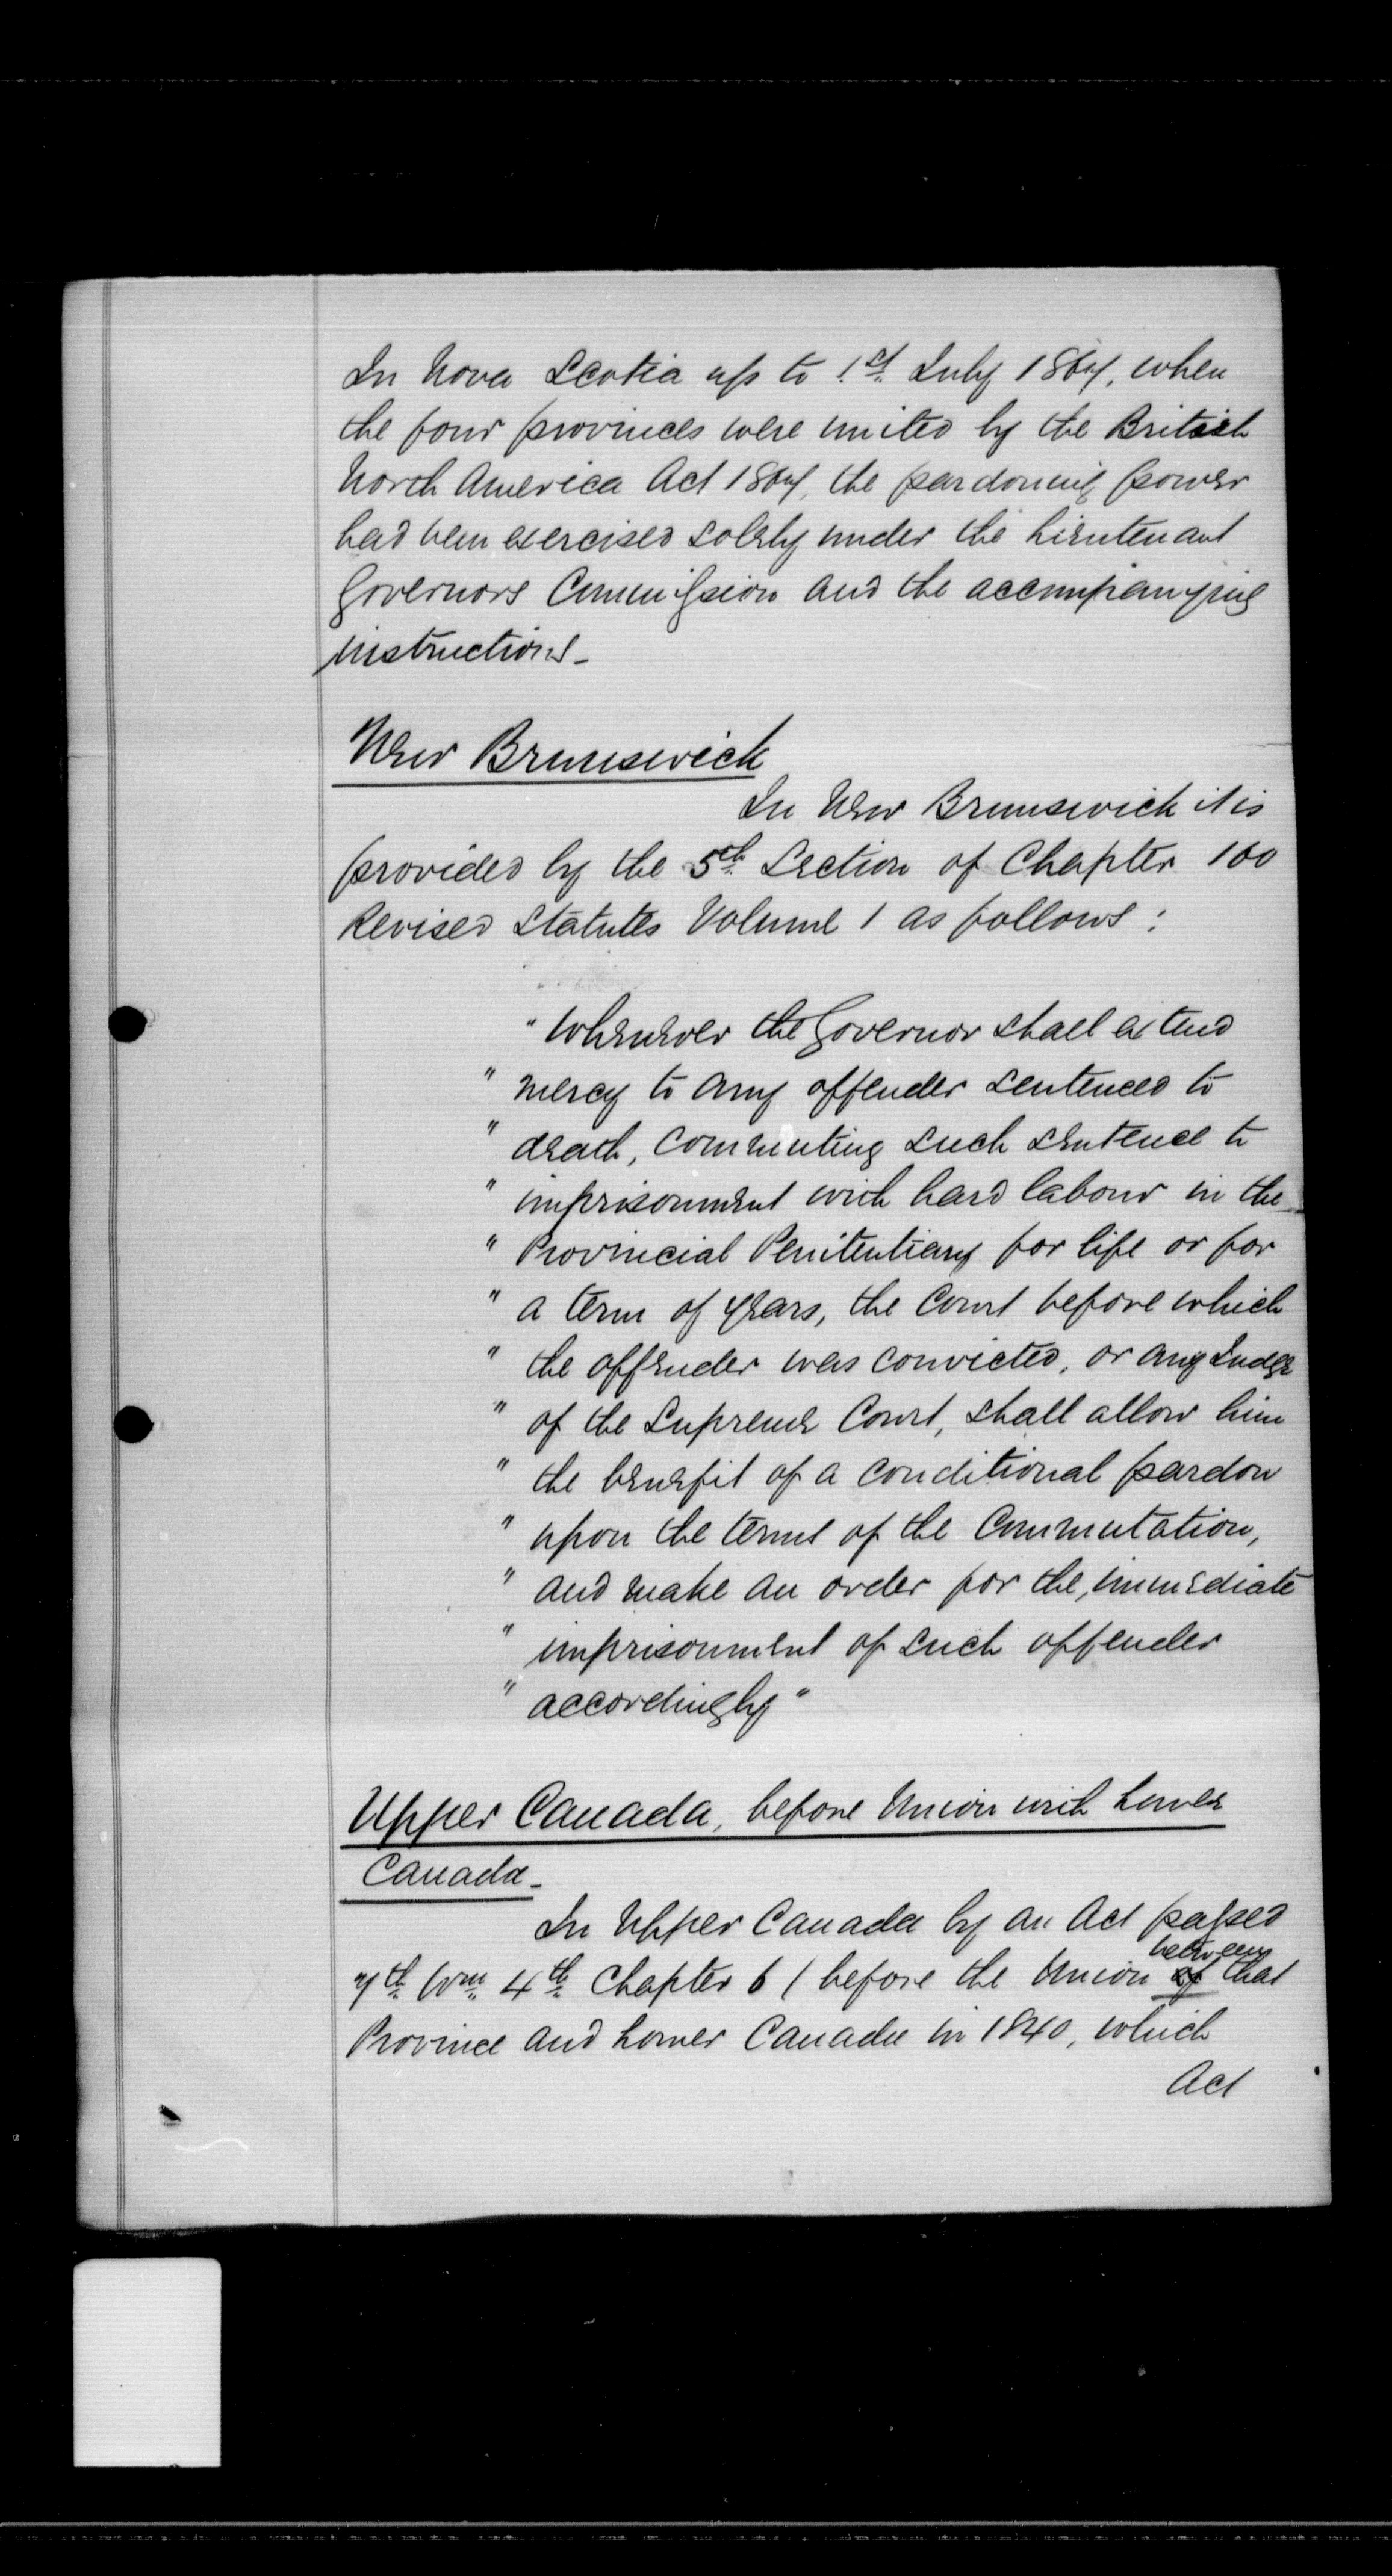 In Nova Scotia up to 1st July 1867, when
the four provinces were united by the British
North America Act 1867, the pardoning power
had been exercised solely under the Lieutenant
Governors Commission and the accompanying
instructions_
New Brunswick
In New Brunswick it is
provided by the 5th Section of Chapter 160
Revised Statutes Volume 1 as follows :
" Whenever the Governor shall extend
" mercy to any offender sentenced to
" death, commuting such sentence to
" imprisonment with hard labour in the
" Provincial Penitentiary for life or for
" a term of years, the Court before which
" the offender was convicted, or any Judge
" of the Supreme Court, shall allow him
" the benefit of a conditional pardon
" upon the terms of the Commutation,
" and make an order for the, immediate
" imprisonment of such offender
" accordingly "
Upper Canada, before Union with Lower
Canada_
In Upper Canada by an Act passed
between
7th Wm 4th Chapter 6 ( before the Union of that
Province and Lower Canada in 1840, which
Act